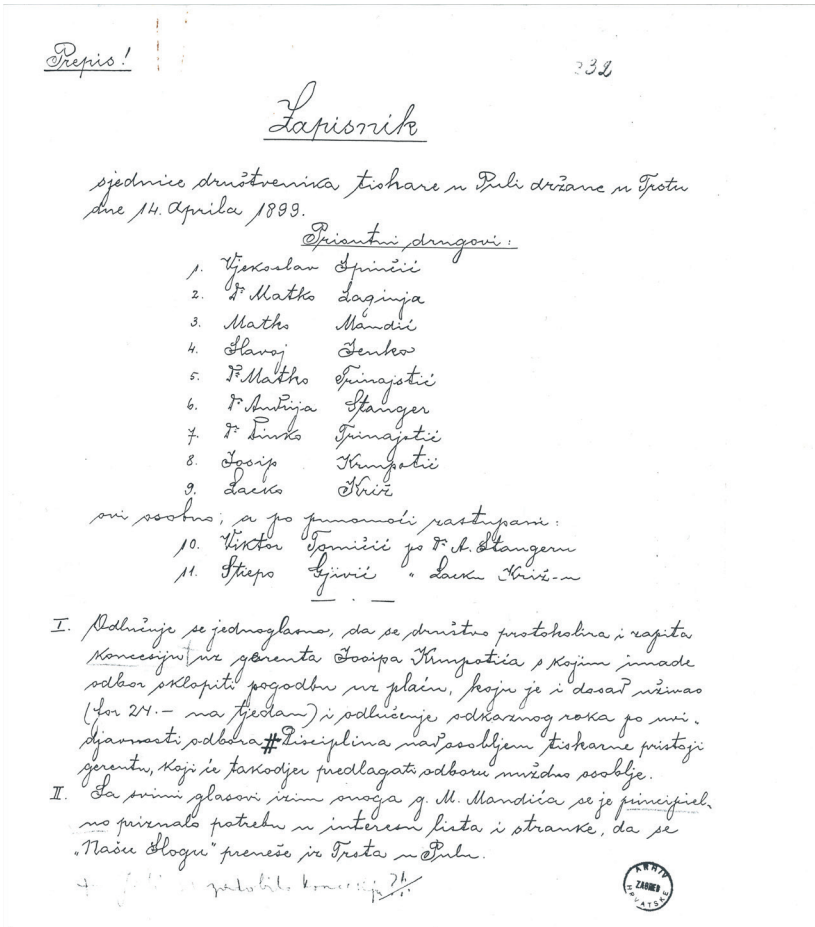 Prepis!
332
Zapisnik
sjednice društvenika tiskare u Puli držane u Trstu
dne 14. Aprila 1899.
Prisutni drugovi:
1. Vjekoslav Spinčić
2. Dr Matko Laginja
3. Matko Mandić
4. Slavoj Jenko
5. Dr Matko Trinajstić
6. Dr Andrija Stanger
7. Dr Dinko Trinajstić
8. Josip Krmpotić
9. Lacko Križ
ovi osobno; a po punomoći zastupani:
10. Viktor Tomičić po Dr A. Stangeru
11. Stiepo Gjivić " Lacku Križ-u
I. Odlučuje se jednoglasno, da se društvo protokolira i zapita
koncesiju uz gerenta Josipa Krmpotića s kojim imade
odbor sklopiti pogodbu uz plaću, koju je i dosad uživao
(for 24.- na tjedan) i odlučenje odkaznog roka po uvi-
djavnosti odbora # Disciplina nad osobljem tiskarne pristoji
gerentu, koji će takodjer predlagati odboru nuždno osoblje.
II. Sa svimi glasovi izim onoga g. M. Mandića se je principiel-
no priznalo potrebu u interesu lista i stranke, da se
„Našu Slogu" prenese iz Trsta u Pulu.
koncesiju
ARHIV HRVATSKE ZAGREB